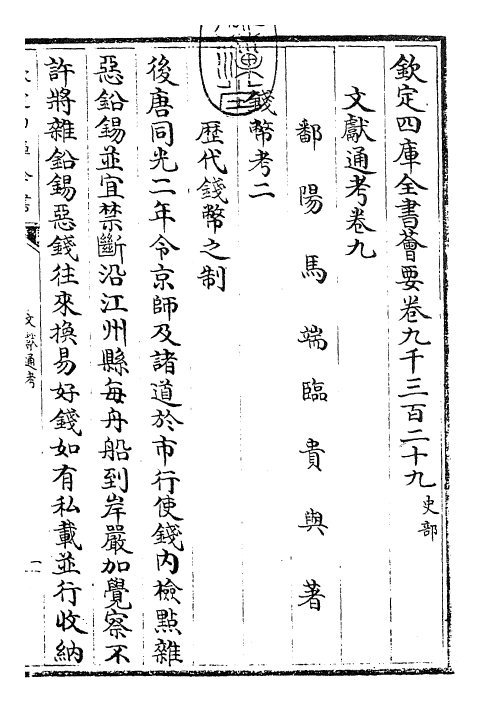 欽定四庫全書薈要卷九千三百二十九 史部
文獻通考卷九
鄱陽馬端臨貴與著
錢幣考二
歷代錢幣之制
後唐同光二年令京師及諸道於市行使錢內檢點雜
惡鉛錫並宜禁斷沿江州縣每舟船到岸嚴加覺察不
許將雜鉛錫惡錢往來換易好錢如有私載並行收納
文獻通考